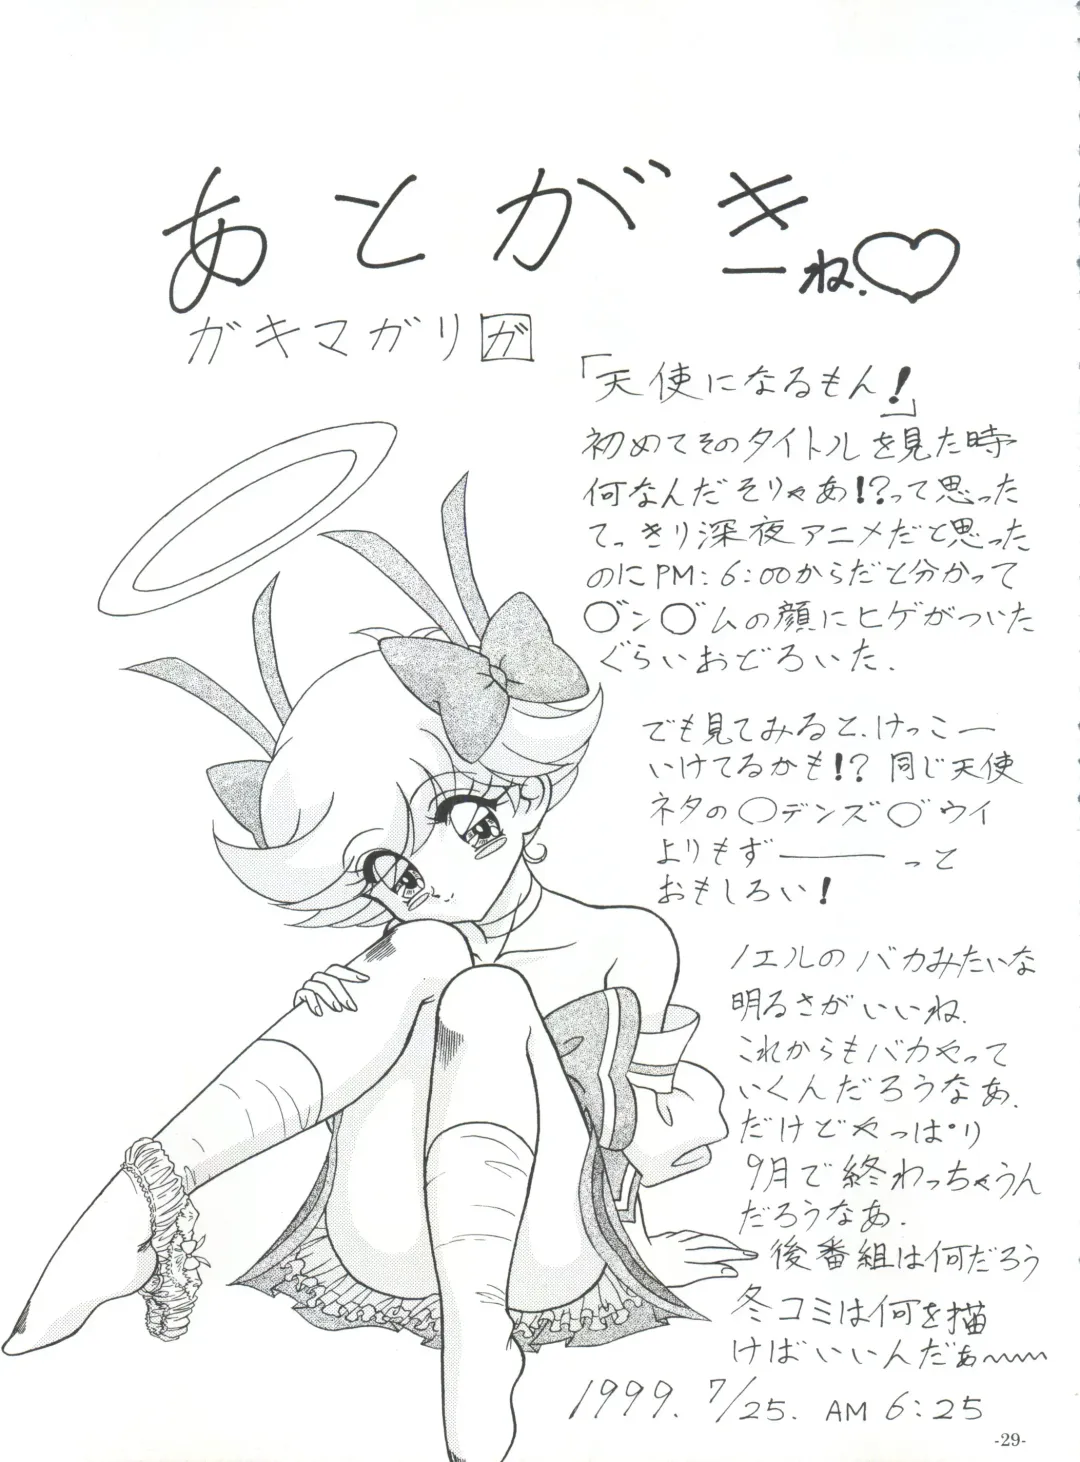 あとがきーね.♡
ガキマガリガ
「天使になるもん！」
初めてそのタイトルを見た時
何なんだそりゃあ！？って思った
てっきり深夜アニメだと思った
のにPM：6：00からだと分かって
〇゛ン〇゛ムの顔にヒゲがついた
ぐらいおどろいた．
でも見てみると、けっこー
いけてるかも！？同じ天使
ネタの〇デンズ〇゛ウイ
よりもず──っと
おもしろい！
ノエルのバカみたいな
明るさがいいね．
これからもバカやって
いくんだろうなあ．
だけどやっぱり
9月で終わっちゃうん
だろうなあ．
後番組は何だろう
冬コミは何を描
けばいいんだぁ〜〜
1999. 7/25. AM 6:25
-29-